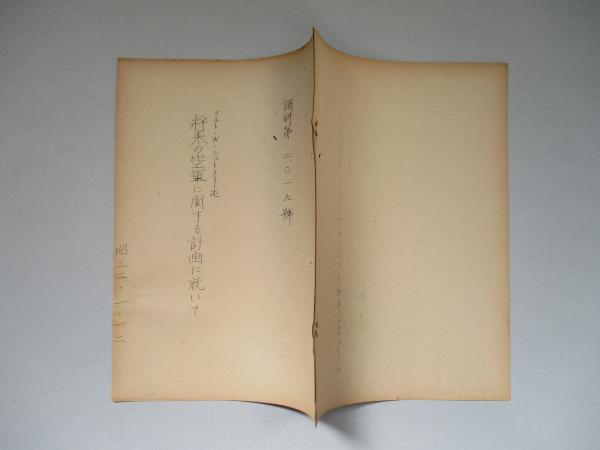 調研第二〇一五號
クルト・W・シュトライト述
将来の空軍に関する計画に就いて
昭三二・一・一二